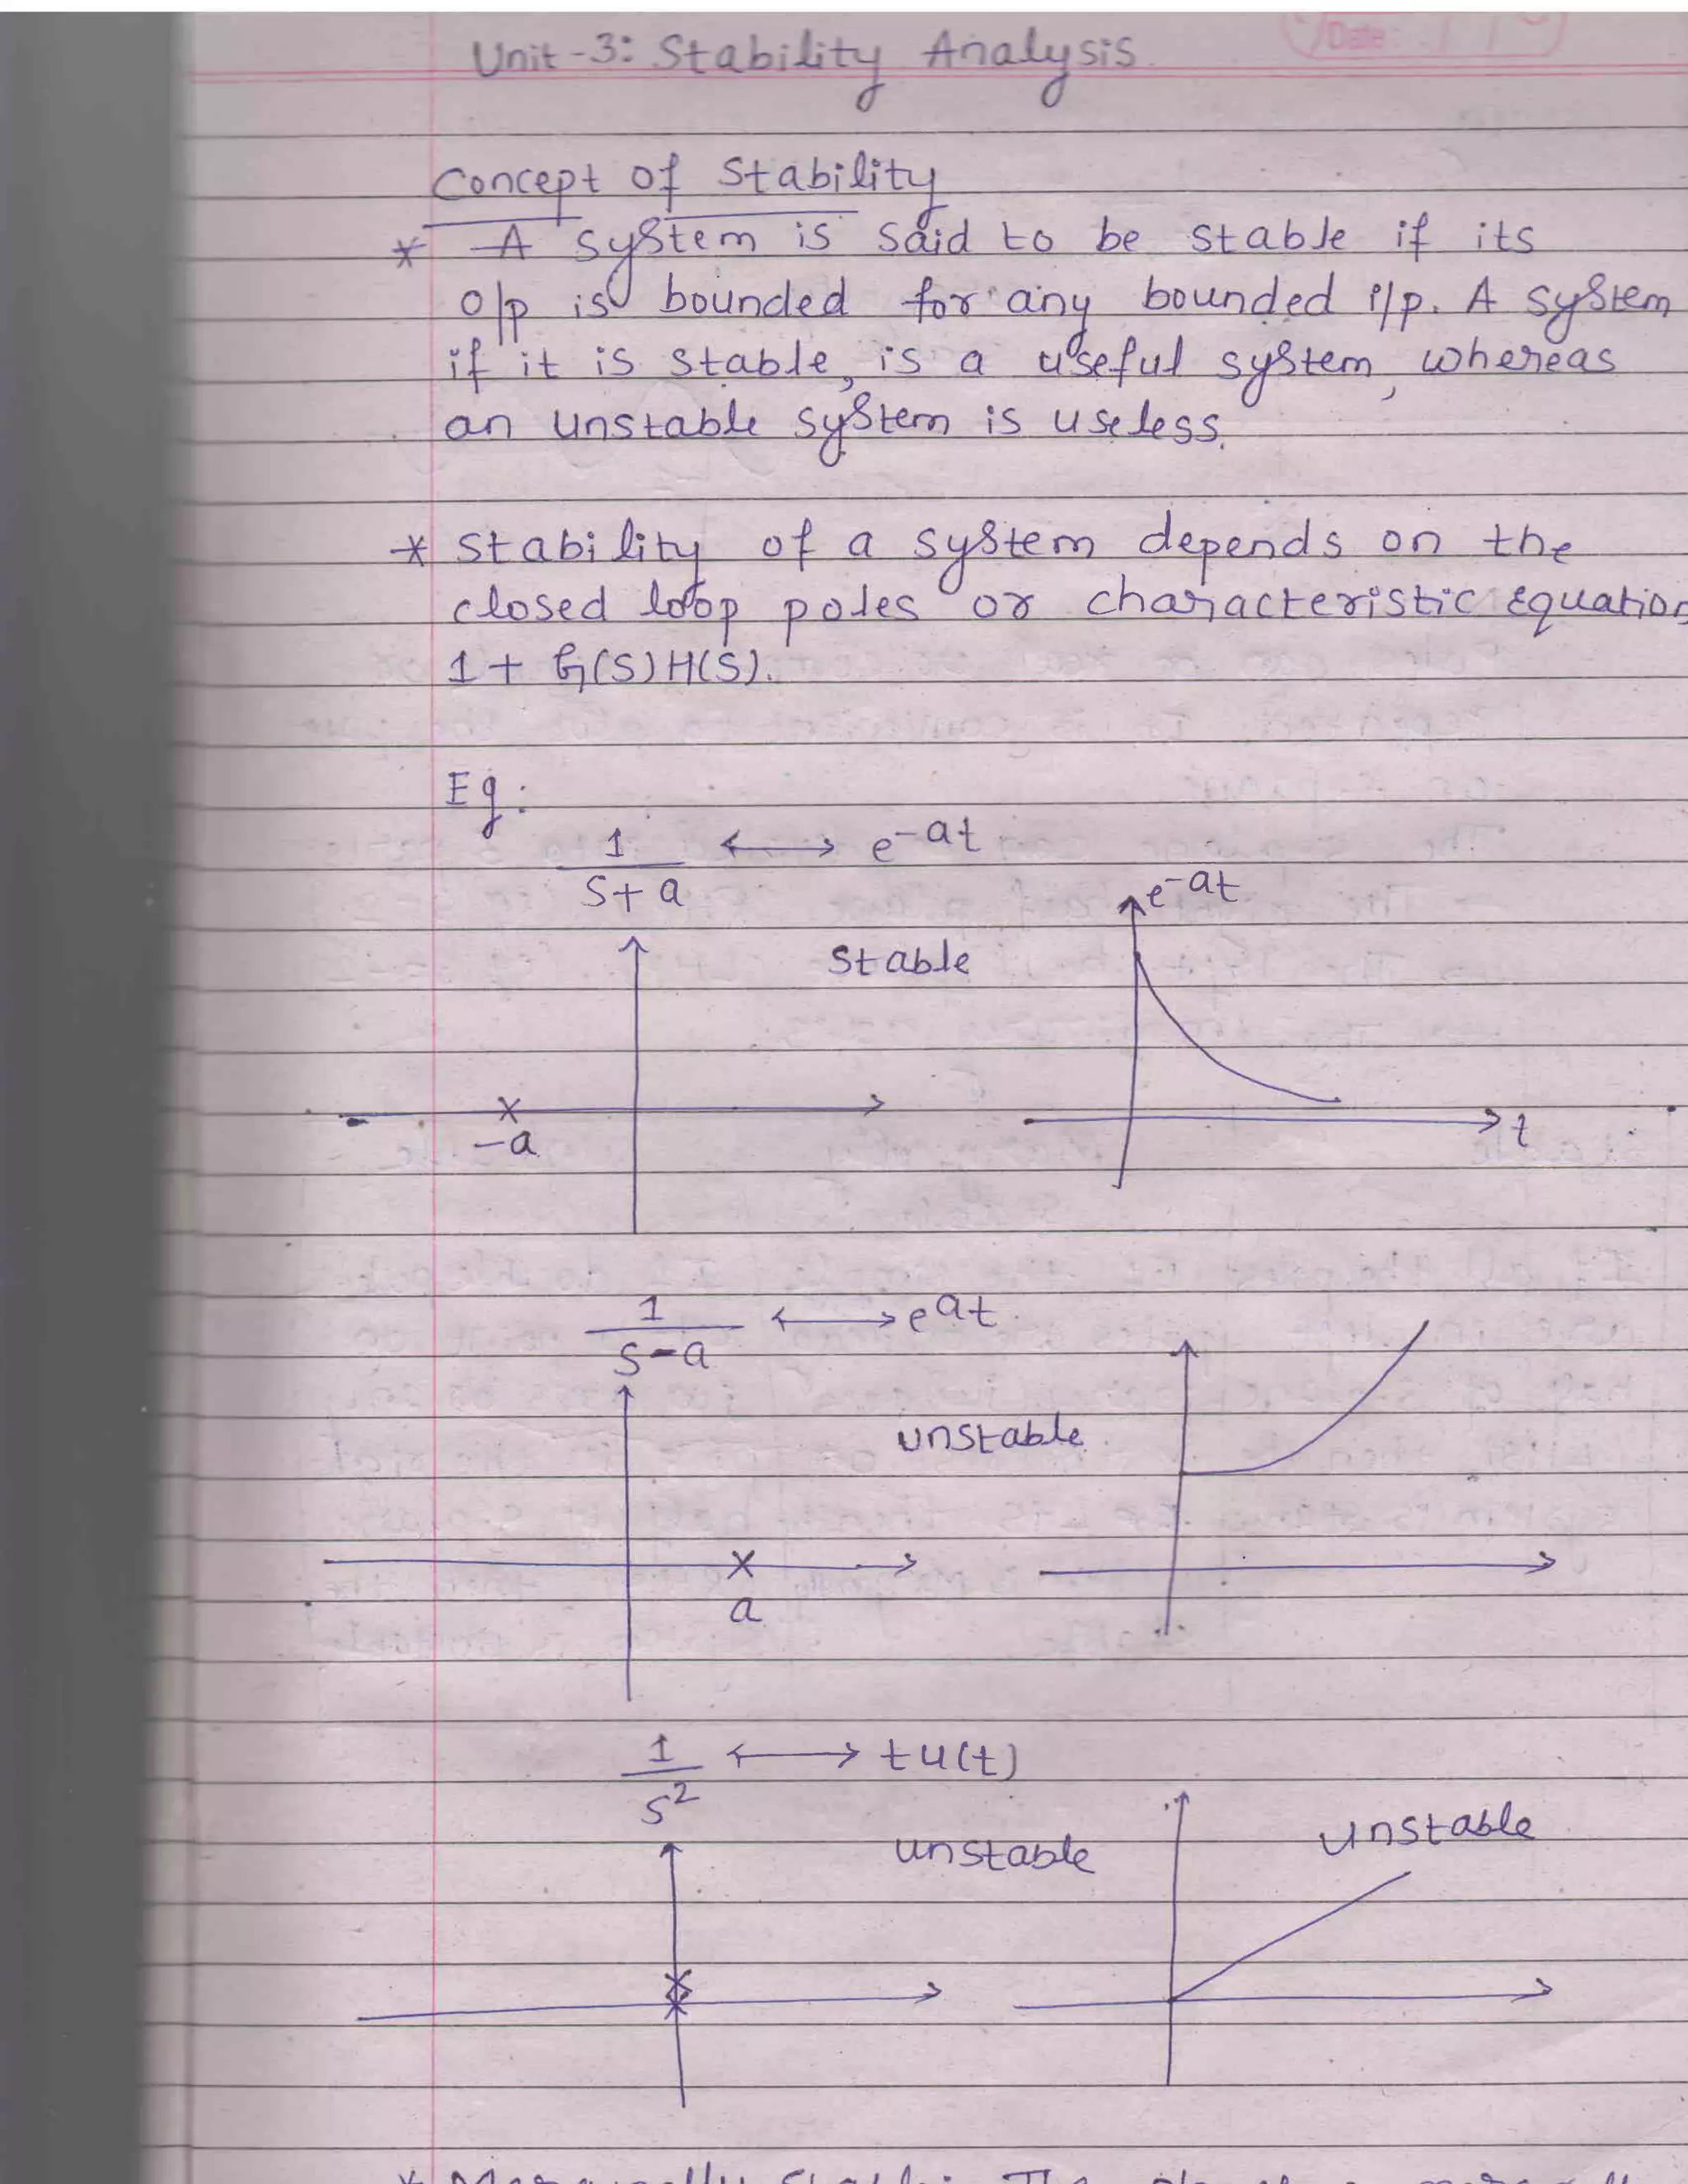 Date:
Unit-3: Stability Analysis
Concept of Stability
* A system is said to be stable if its
o/p is bounded for any bounded i/p. A system
if it is stable, is a useful system, whereas
an unstable system is useless.
* Stability of a system depends on the
closed loop poles or characteristic Equation
1 + G(S)H(S).
Eg:
1/(S+a) ⟷ e^-at
e^-at
Stable
-a
t
1/(S-a) ⟷ e^at
unstable
a
1/S² ⟷ tu(t)
unstable
unstable
* Marginally Stable: The